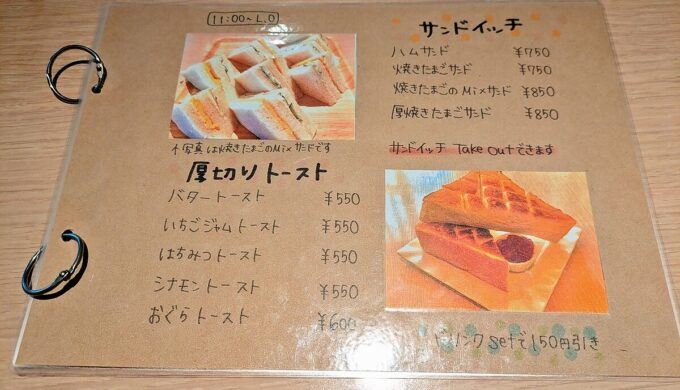 11:00~L.O
サンドイッチ
ハムサンド ¥750
焼きたまごサンド ¥750
焼きたまごのMixサンド ¥850
厚焼きたまごサンド ¥850
サンドイッチ Take Outできます
↑写真は焼きたまごのMixサンドです
厚切りトースト
バタートースト ¥550
いちごジャムトースト ¥550
はちみつトースト ¥550
シナモントースト ¥550
おぐらトースト ¥600
ドリンクSetで150円引き